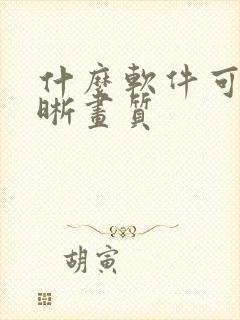 什麼軟件可
晰畫質
胡寅